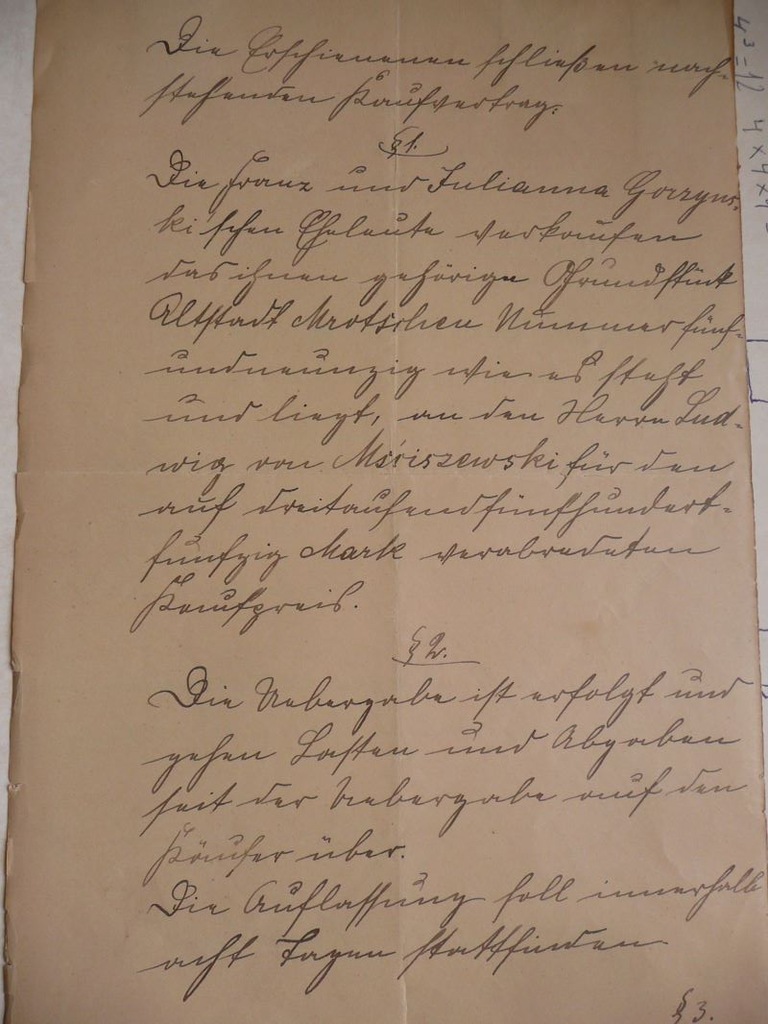 Die Erschienenen schließen nach-
stehenden Kaufvertrag:
§ 1.
Die Franz und Julianna Gorzyns-
ki schen Eheleute verkaufen
das ihnen gehörige Grundstück
Altstadt Mrotschen Nummer fünf-
undneunzig wie es steht
und liegt, an den Herrn Lud-
wig von Mściszewski für den
auf dreitausendfünfhundert-
fünfzig Mark verabredeten
Kaufpreis.
§ 2.
Die Uebergabe ist erfolgt und
gehen Lasten und Abgaben
seit der Uebergabe auf den
Käufer über.
Die Auflassung soll innerhalb
acht Tagen stattfinden
§ 3.